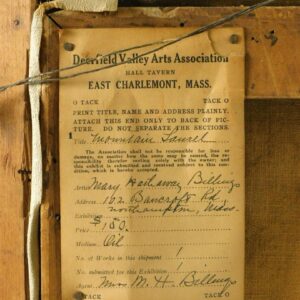 Deerfield Valley Arts Association
HALL TAVERN
EAST CHARLEMONT, MASS.
O TACK TACK O
PRINT TITLE, NAME AND ADDRESS PLAINLY.
ATTACH THIS END ONLY TO BACK OF PIC-
TURE. DO NOT SEPARATE THE SECTIONS.
Title Mountain Laurel
The Association shall not be responsible for loss or
damage, no matter how the same may be caused, the re-
sponsibility therefor resting solely with the owner; and
this exhibit is submitted and received subject to the con-
dition, which is hereby accepted.
Artist Mary Hathaway Billings
Address 162 Bancroft Rd
Northampton, Mass.
Exhibition
$150.
Medium Oil
No. of Works in this shipment 1
No. submitted for this Exhibition 1
Agent Mrs. M. H. Billings
O TACK